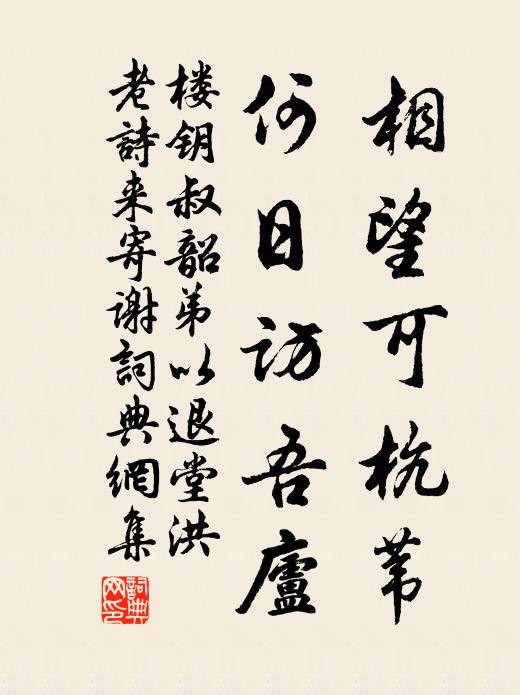 相望可杭苇
何日访吾廬
楼钥叔韶弟以退堂洪
老詩来寄谢詞典網集
詞典網印